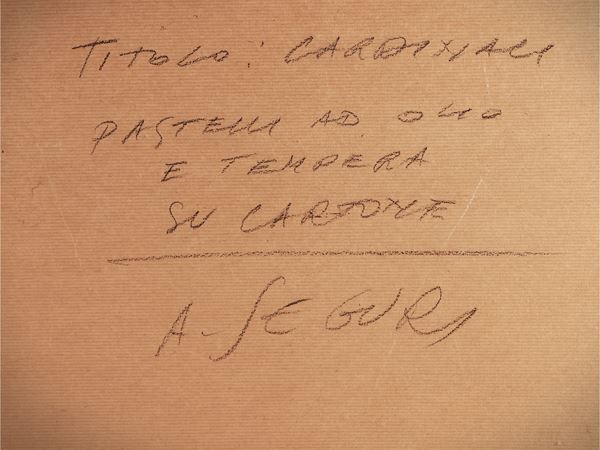 TITOLO: CARDINALI
PASTELLI AD OLIO
E TEMPERA
SU CARTONE
A. SEGURI